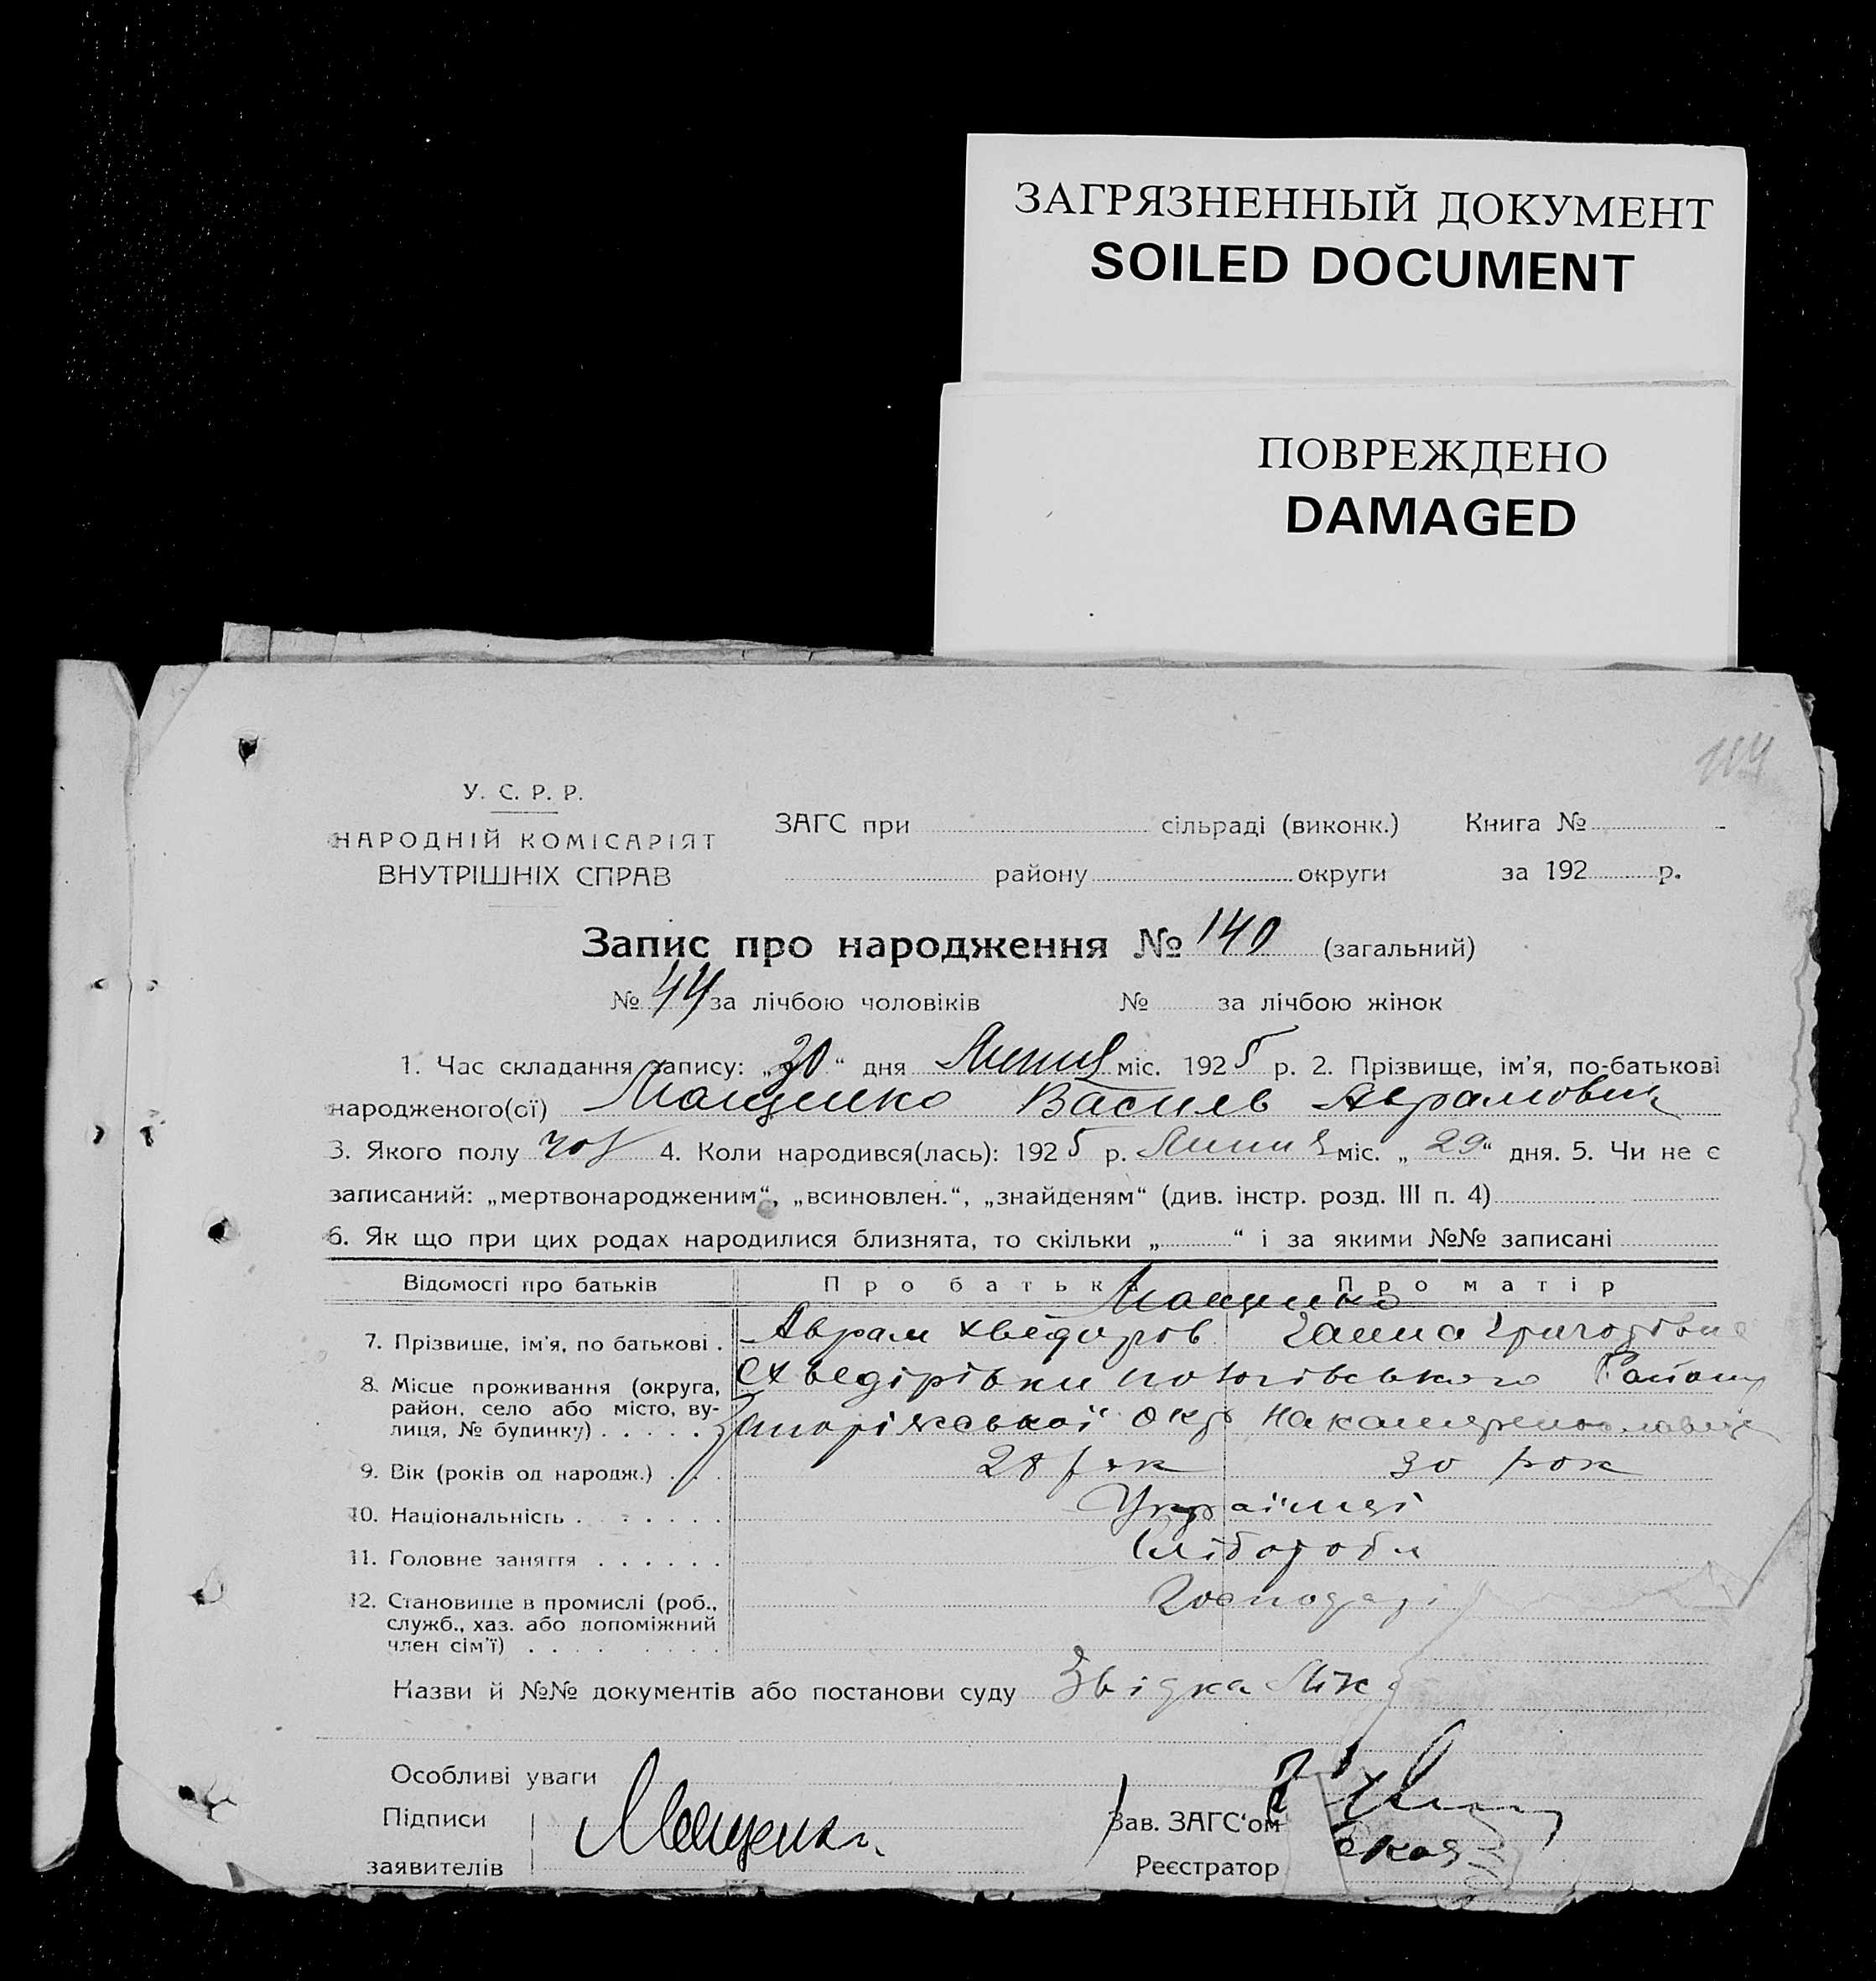 ЗАГРЯЗНЕННЫЙ ДОКУМЕНТ
SOILED DOCUMENT
ПОВРЕЖДЕНО
DAMAGED
У. С. Р. Р.
НАРОДНІЙ КОМІСАРІЯТ
ВНУТРІШНІХ СПРАВ
ЗАГС при сільраді (виконк.) Книга №
району округи за 192 р.
Запис про народження № 140 (загальний)
№ 44 за лічбою чоловіків № за лічбою жінок
1. Час складання запису: „30“ дня Липня міс. 1925 р. 2. Прізвище, ім'я, по-батькові
народженого(ої) Мащенко Василь Аврамович
3. Якого полу чол 4. Коли народився(лась): 1925 р. Липня міс. „29“ дня. 5. Чи не є
записаний: „мертвонародженим“, „всиновлен.“, „знайденям“ (див. інстр. розд. III п. 4)
6. Як що при цих родах народилися близнята, то скільки „ “ і за якими №№ записані
Відомості про батьків Про батька Про матір
Мащенко
7. Прізвище, ім'я, по батькові . Аврам Хведоров Ганна Григорівна
8. Місце проживання (округа, район, село або місто, ву-
лиця, № будинку) . . . . .
Хведірівки Району
Запоріжської окр
9. Вік (років од народж.) . . . 28 рок 30 рок
10. Національність . . . . . . Українці
11. Головне заняття . . . . . . Хлібороби
12. Становище в промислі (роб., Господарі
служб., хаз. або допоміжний
член сім'ї) . . . . . . . .
Назви й №№ документів або постанови суду Звідка
Особливі уваги
Підписи Мащенко Зав. ЗАГС'ом
заявителів Реєстратор